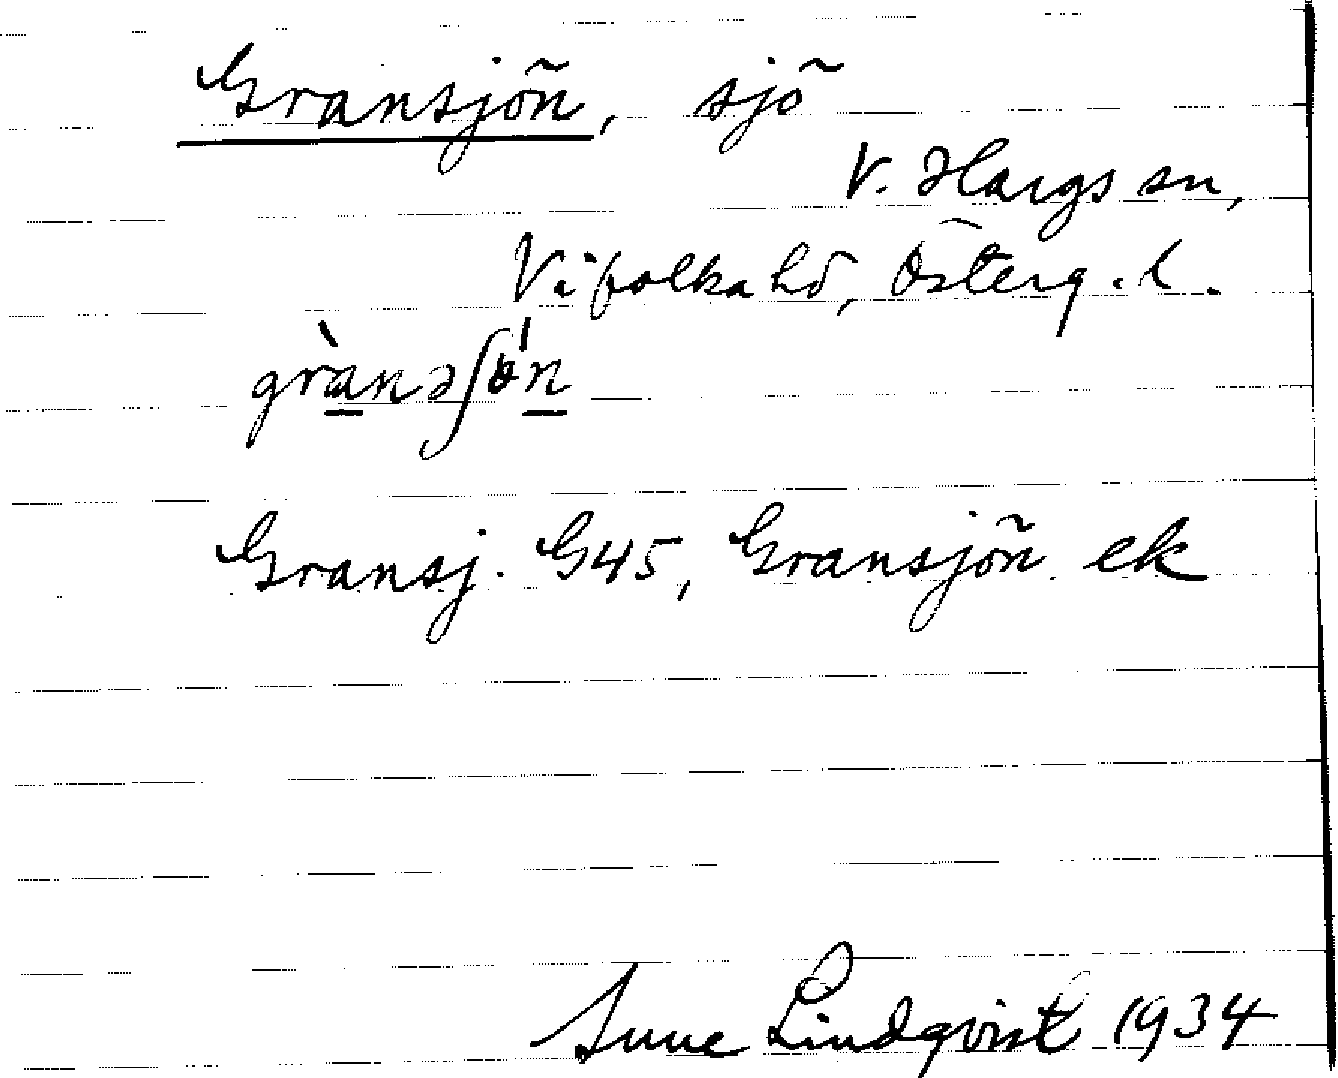 Gransjön, sjö
V. Hargs sn,
Vifolka hd, Österg. l.
grànəʃǿn
Gransj. G45, Gransjön ek
Sune Lindqvist 1934